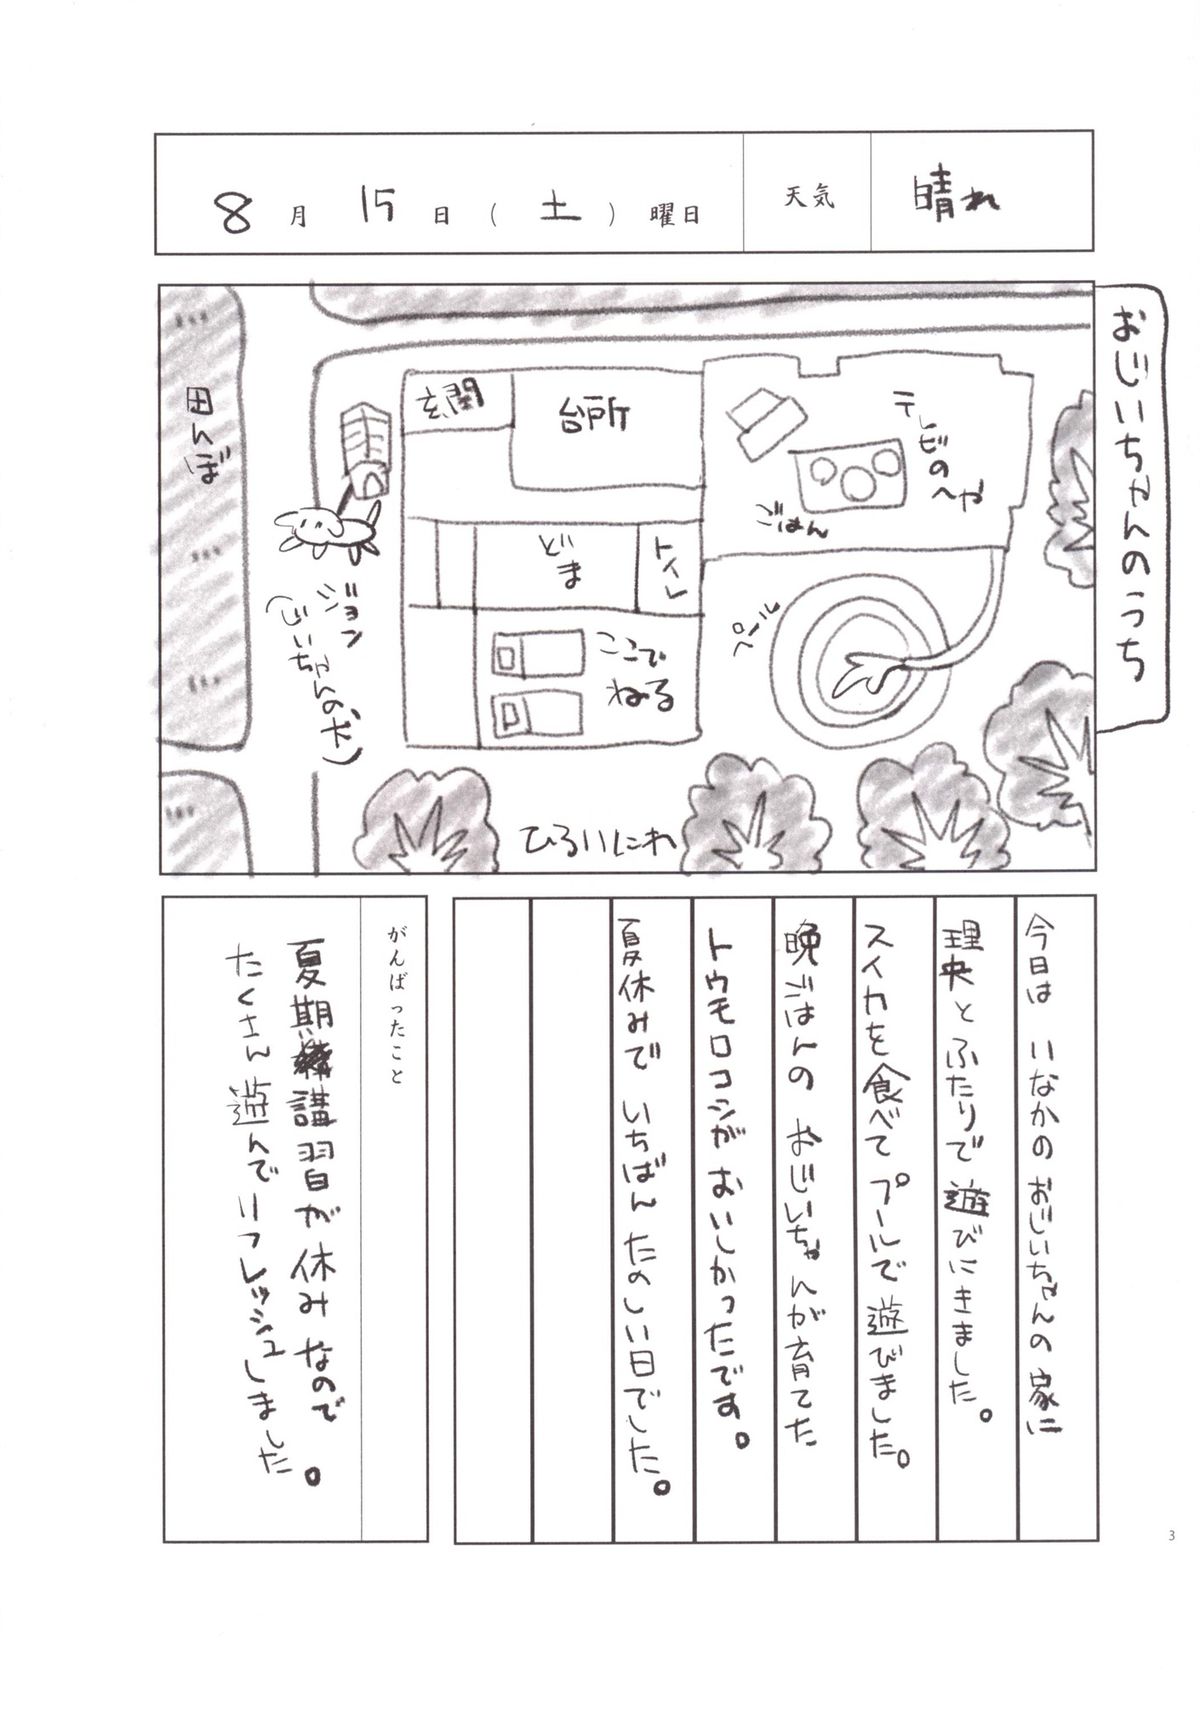 8月15日(土)曜日
天気
晴れ
おじいちゃんのうち
田んぼ
玄関
台所
テレビのへや
ごはん
どま
トイレ
プール
ジョン
(じいちゃんの犬)
ここで
ねる
ひろいにわ
今日は いなかのおじいちゃんの家に
理央とふたりで遊びにきました。
スイカを食べてプールで遊びました。
晩ごはんの おじいちゃんが育てた
トウモロコシがおいしかったです。
夏休みで いちばん たのしい日でした。
がんばったこと
夏期講習が休みなので
たくさん遊んでリフレッシュしました。
3